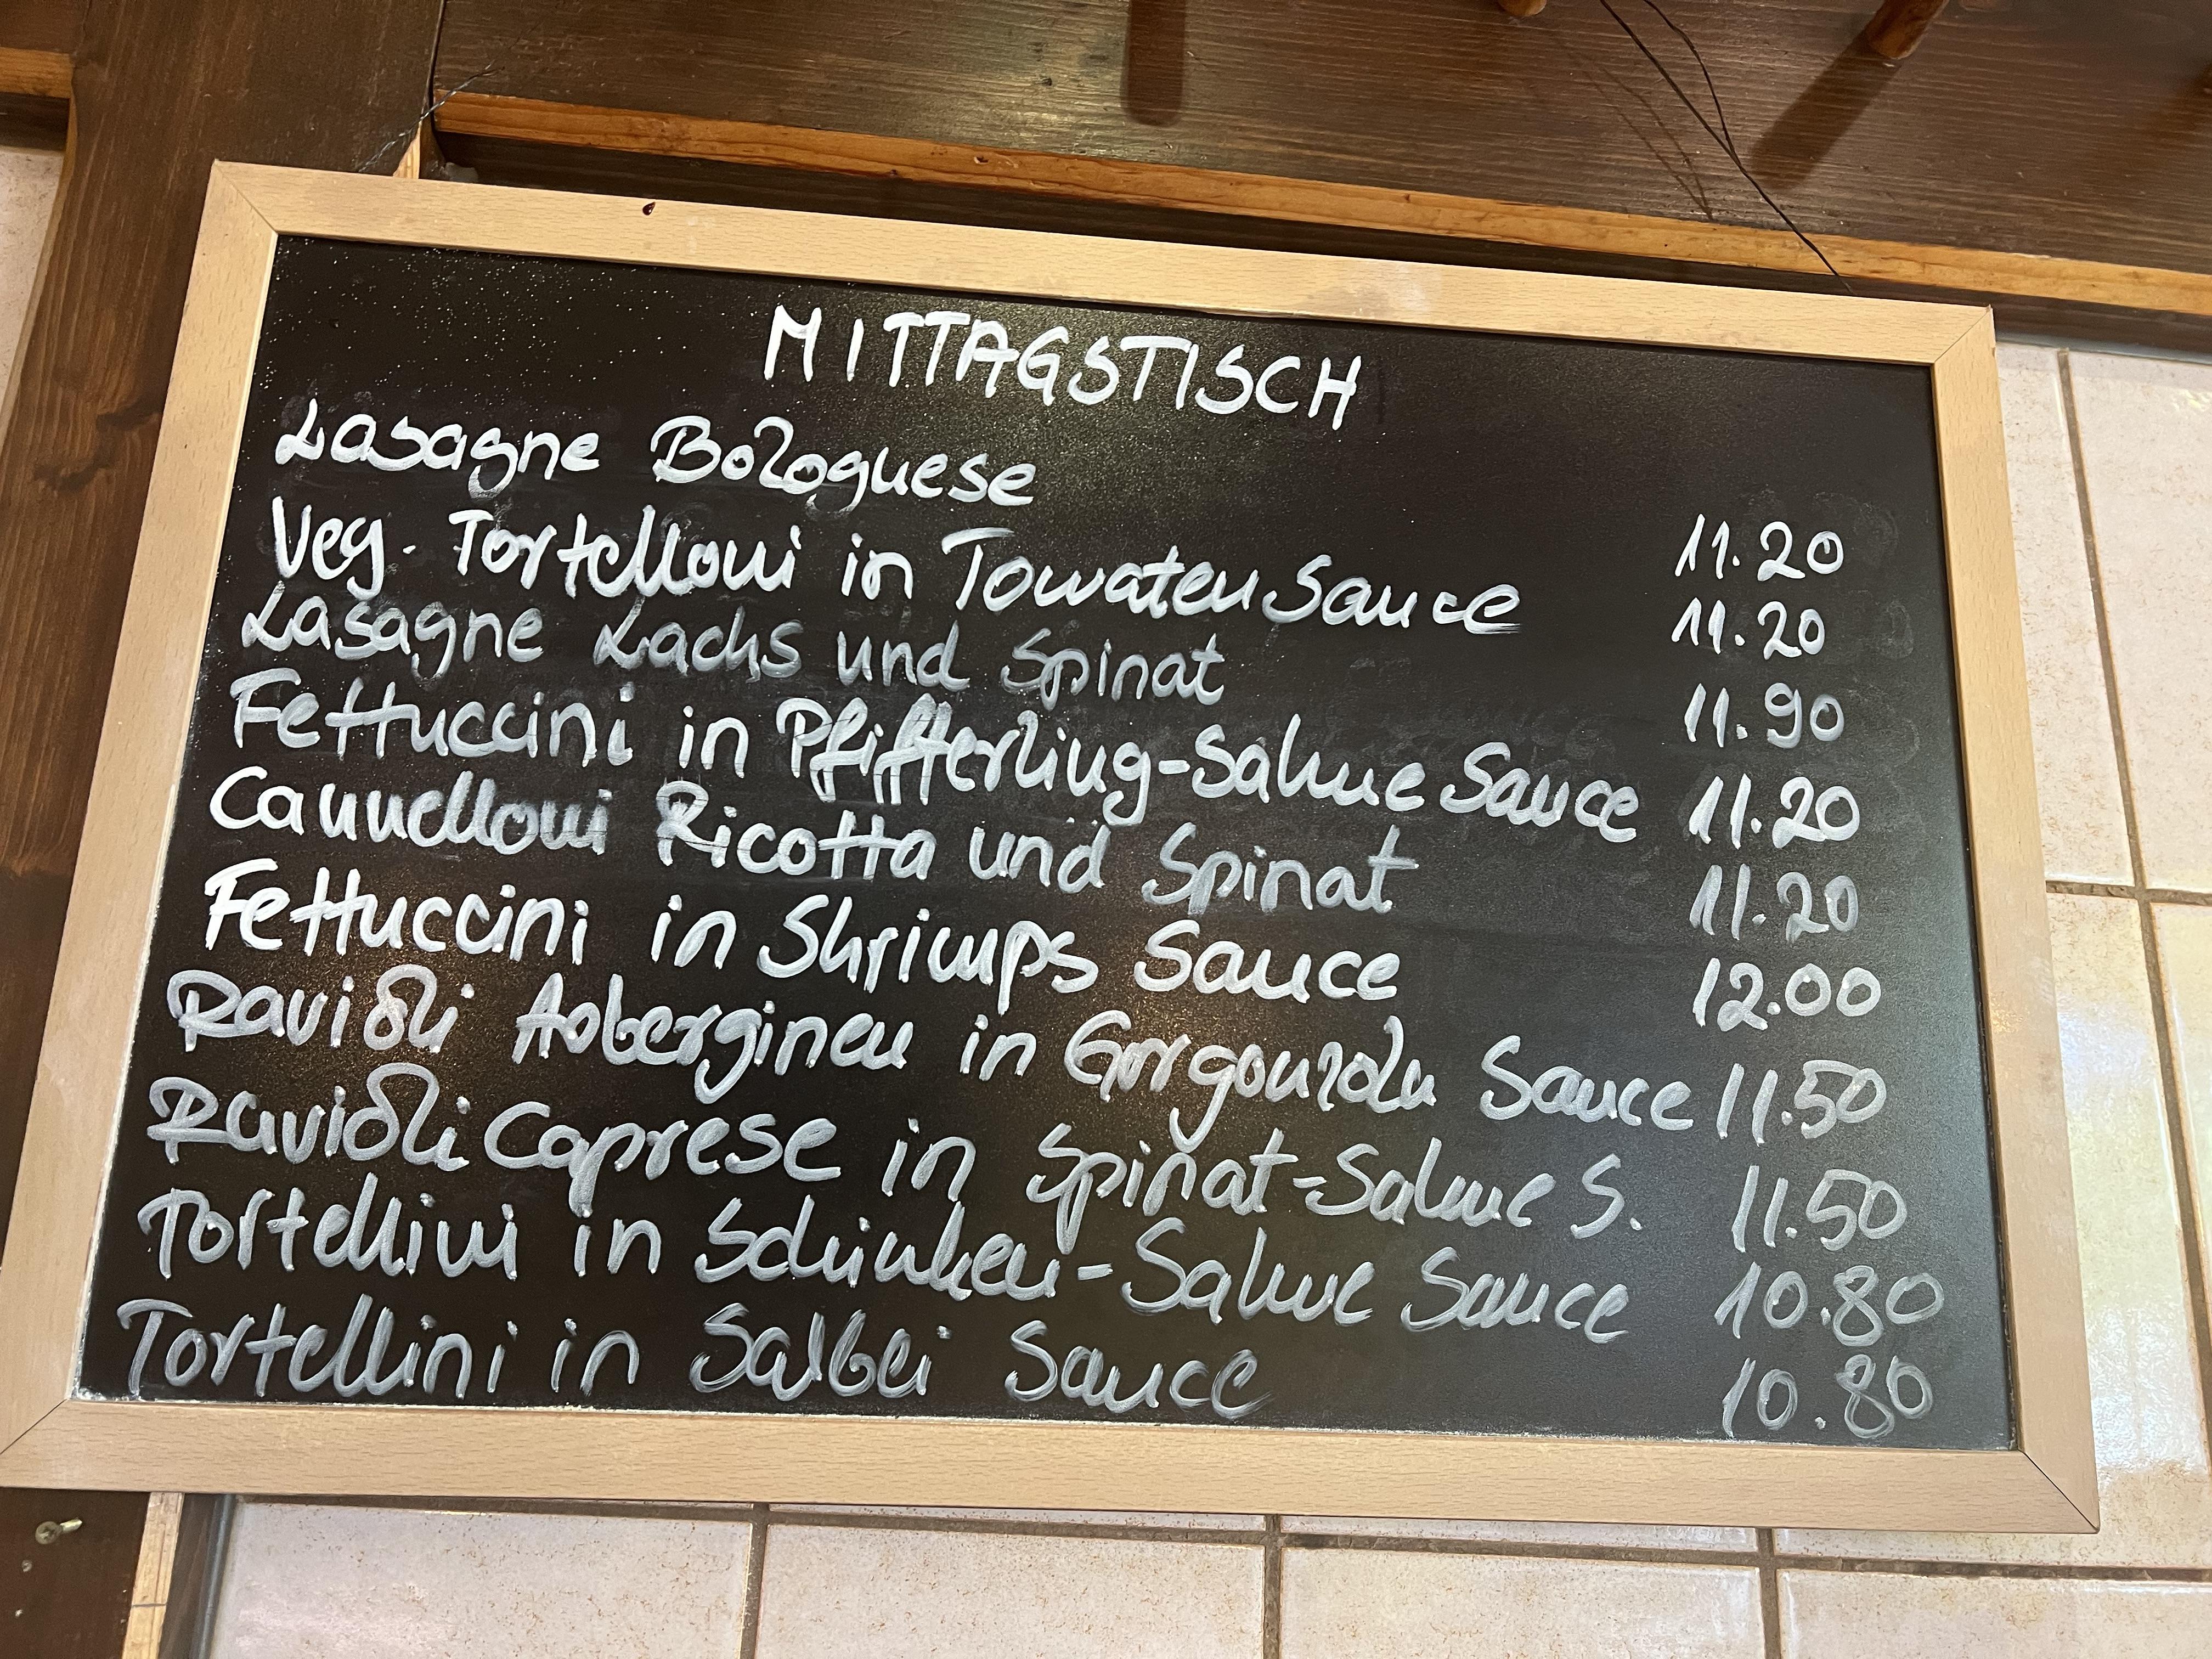 MITTAGSTISCH
Lasagne Bolognese 11.20
Veg. Tortelloni in Tomaten Sauce 11.20
Lasagne Lachs und Spinat 11.90
Fettuccini in Pfifferling-Sahne Sauce 11.20
Cannelloni Ricotta und Spinat 11.20
Fettuccini in Shrimps Sauce 12.00
Ravioli Aoberginen in Gorgonzola Sauce 11.50
Ravioli Caprese in Spinat-Sahne S. 11.50
Tortellini in Schinken-Sahne Sauce 10.80
Tortellini in Salbei Sauce 10.80